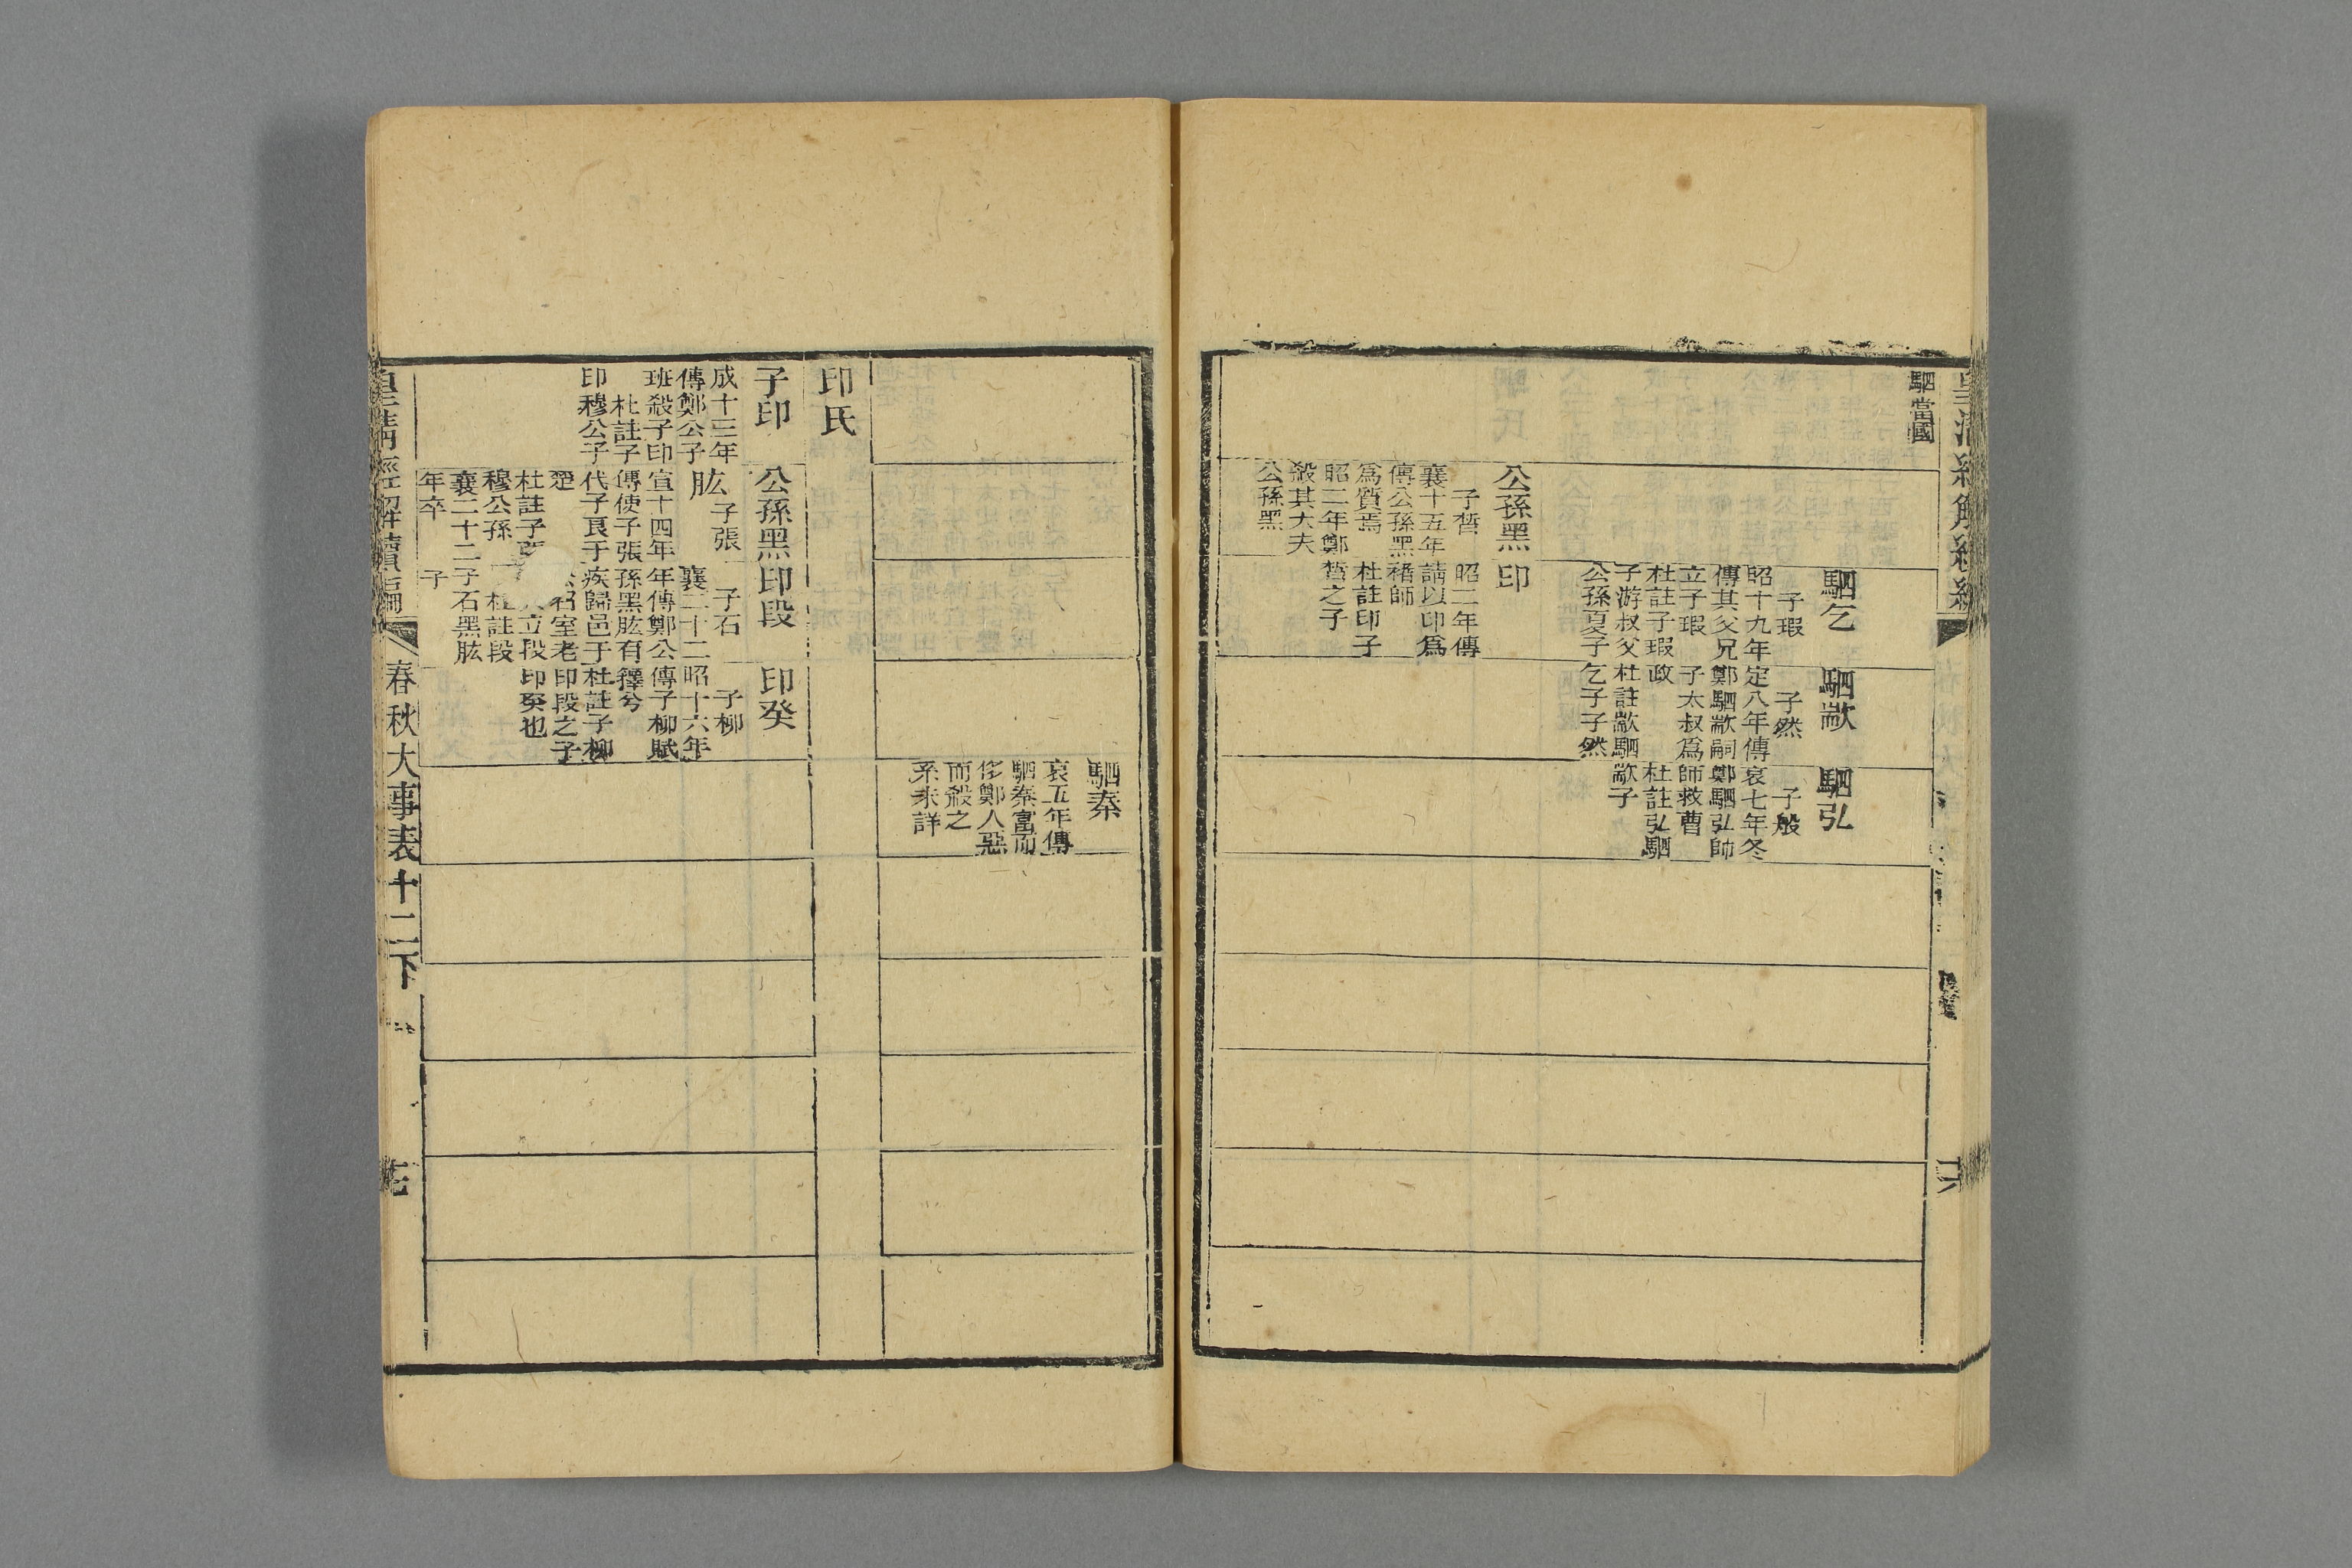 駟當國
駟乞
子瑕
昭十九年
傳其父兄
立子瑕
杜註子瑕
子游叔父
公孫夏子
駟歂
子然
定八年傳
鄭駟歂嗣
子太叔爲
政
杜註歂駟
乞子子然
駟弘
子般
哀七年冬
鄭駟弘帥
師救曹
杜註弘駟
歂子
公孫黑
子晳
襄十五年
傳公孫黑
爲質焉
昭二年鄭
殺其大夫
公孫黑
印
昭二年傳
請以印爲
褚師
杜註印子
晳之子
駟秦
哀五年傳
駟秦富而
侈鄭人惡
而殺之
系未詳
印氏
子印
成十三年
傳鄭公子
班殺子印
杜註子
印穆公子
公孫黑
肱 子張
宣十四年
傳使子張
代子良于
楚
杜註子張
穆公孫
襄二十二
年卒
印段
子石
襄二十二
年傳鄭公
孫黑肱有
疾歸邑于
召室老
立段
杜註段
子石黑肱
子
印癸
子柳
昭十六年
傳子柳賦
蘀兮
杜註子柳
印段之子
印癸也
春秋大事表十二下